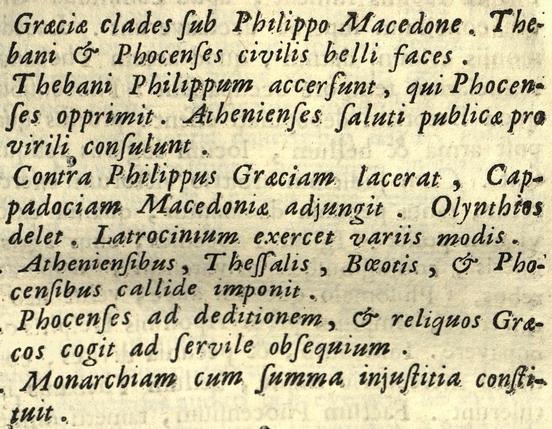 Græciæ clades ſub Philippo Macedone. The-
bani & Phocenſes civilis belli faces.
Thebani Philippum accerſunt, qui Phocen-
ſes opprimit. Athenienſes ſaluti publicæ pro
virili conſulunt.
Contra Philippus Græciam lacerat, Cap-
padociam Macedoniæ adjungit. Olynthios
delet. Latrocinium exercet variis modis.
Athenienſibus, Theſſalis, Bœotis, & Pho-
cenſibus callide imponit.
Phocenſes ad deditionem, & reliquos Græ-
cos cogit ad ſervile obſequium.
Monarchiam cum ſumma injuſtitia conſti-
tuit.